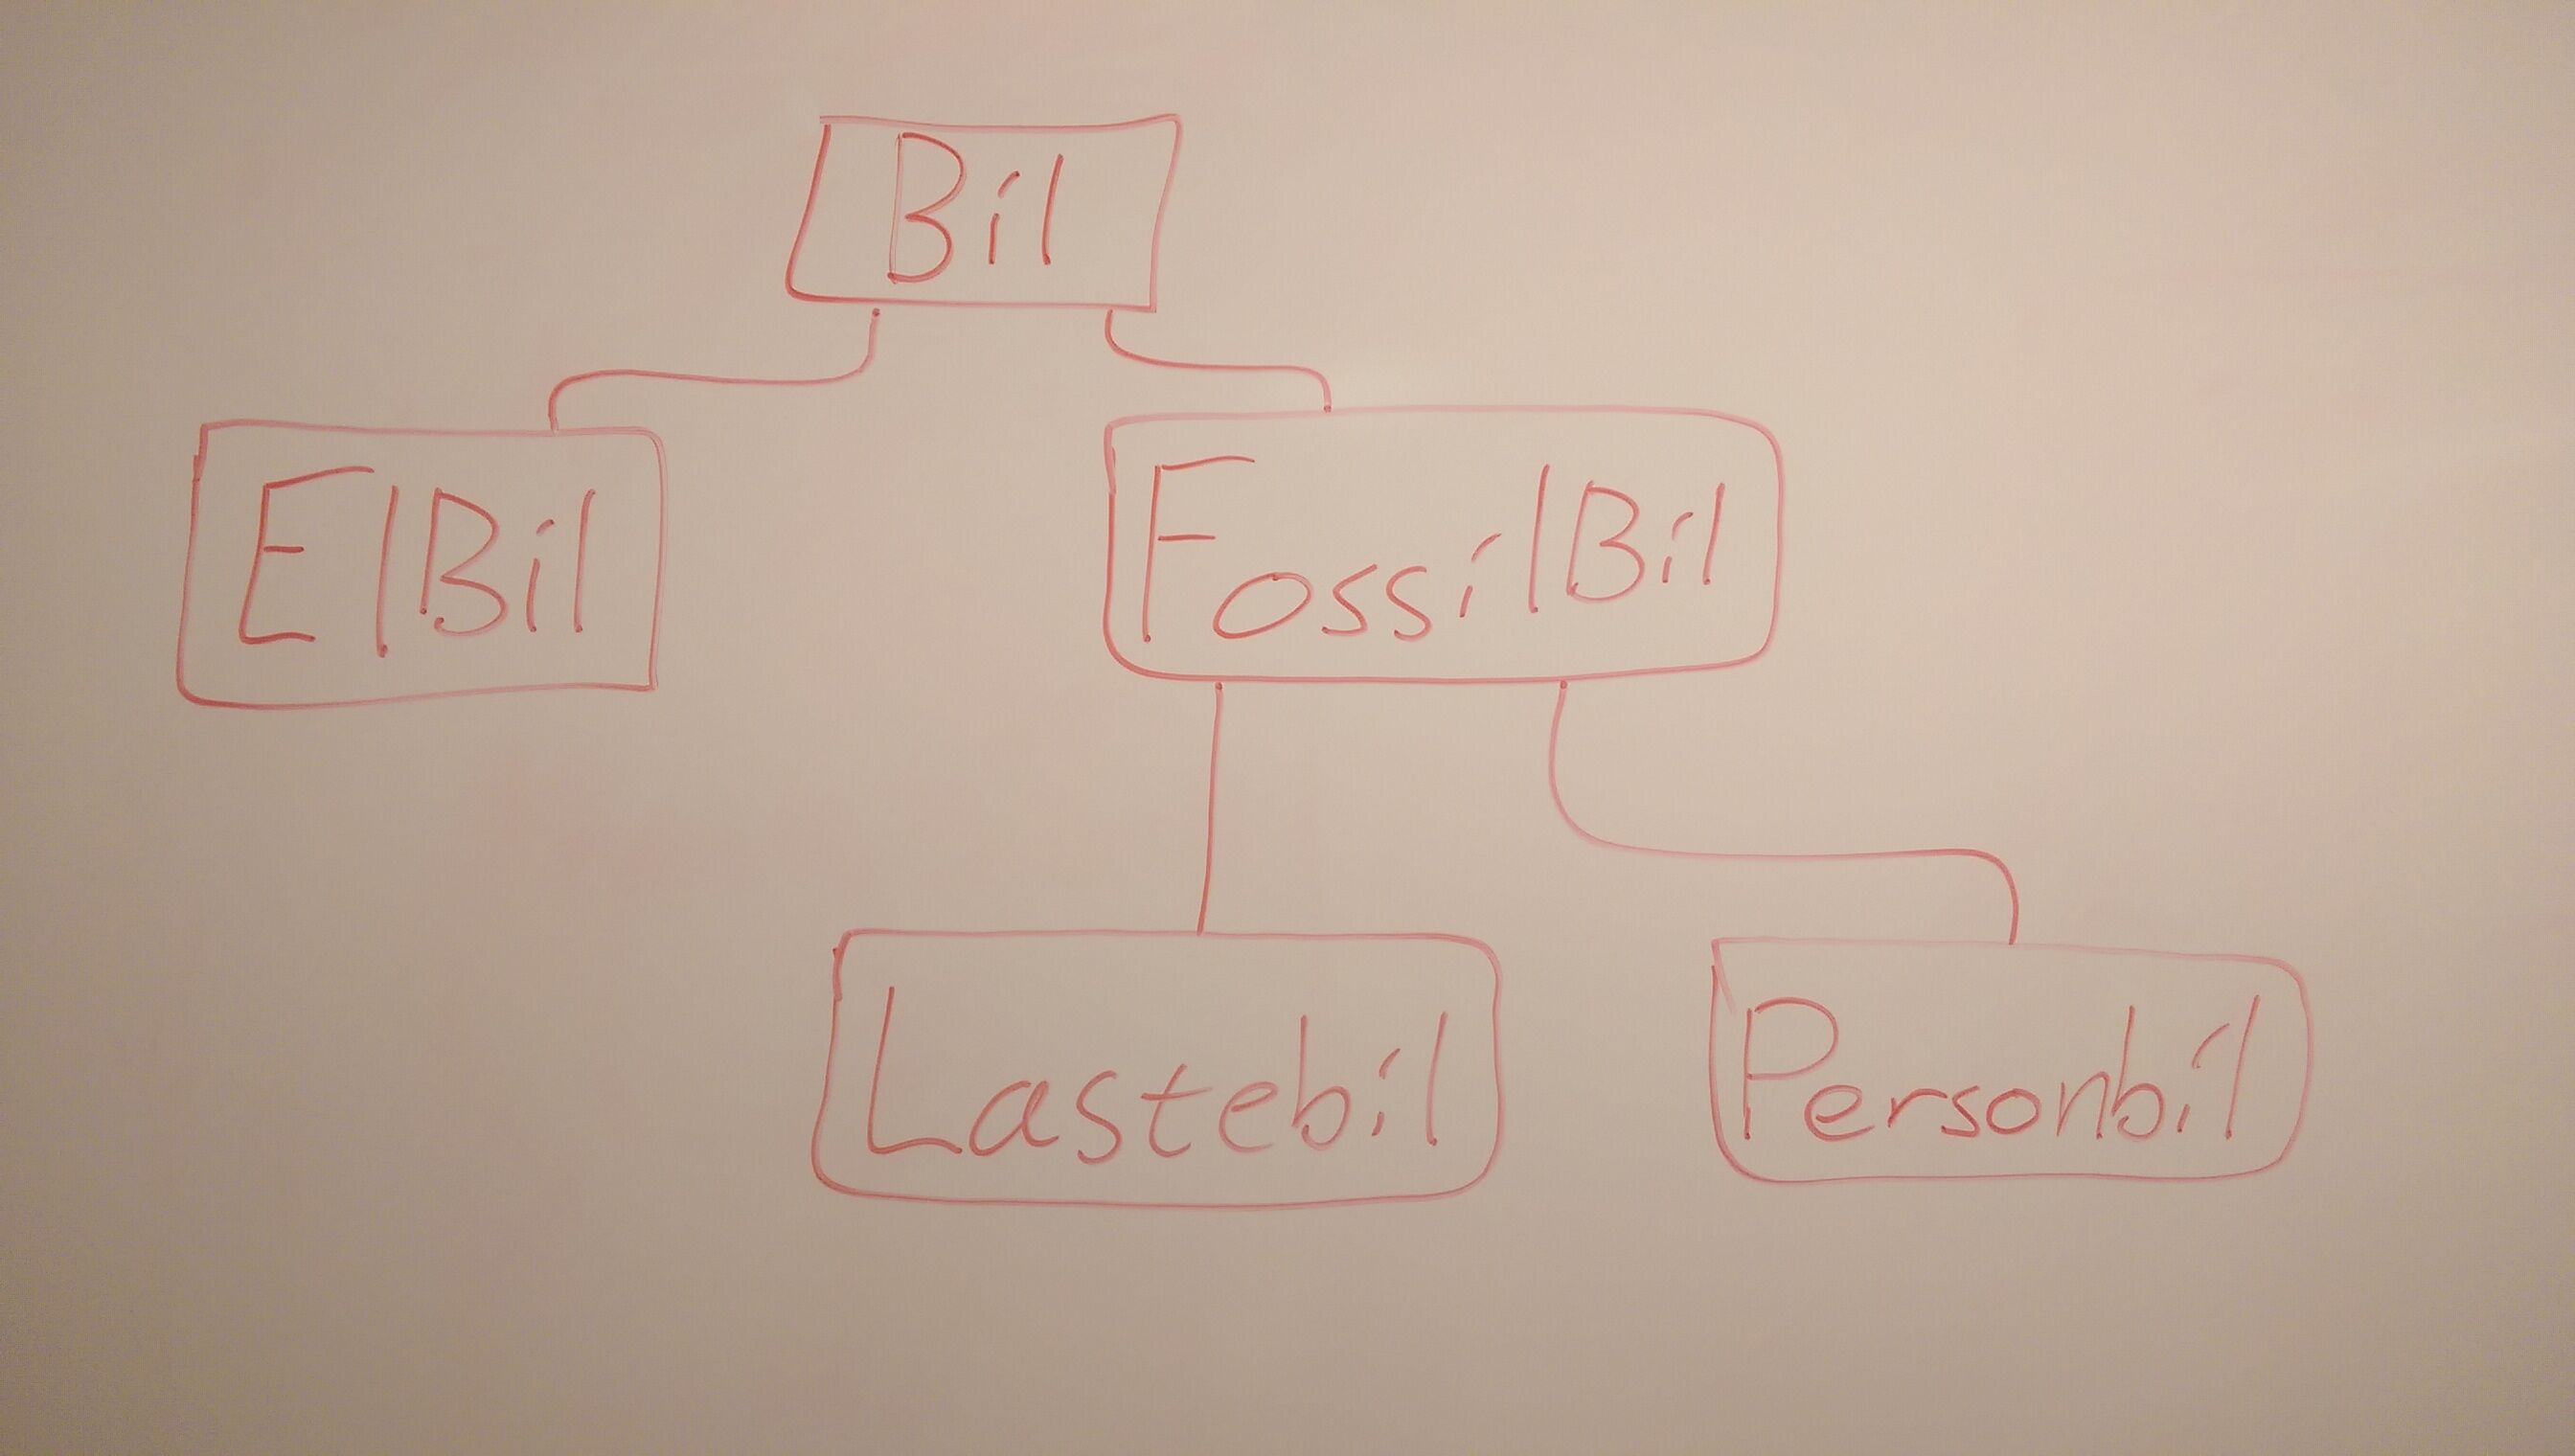 Bil
ElBil
FossilBil
Lastebil
Personbil